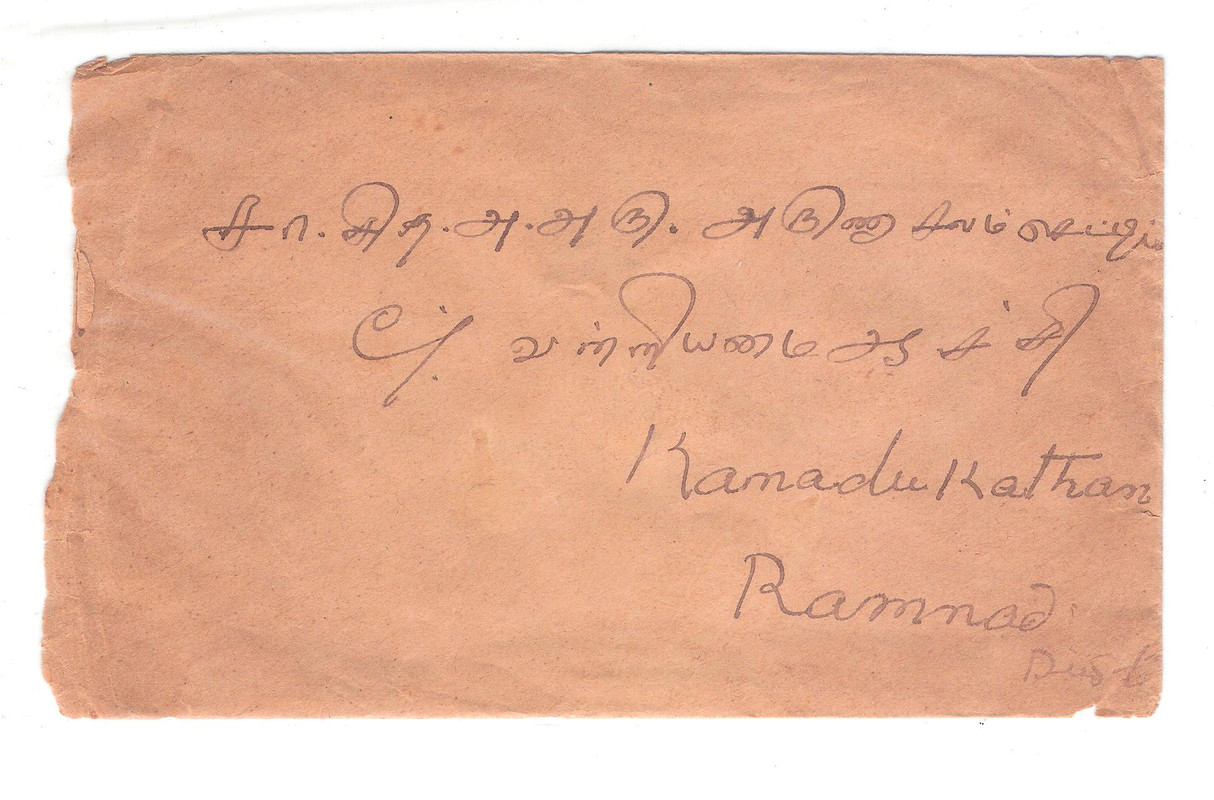 சா. சித. அ. அரு. அருணாசலம் செட்டியார்
பெ/. வள்ளியம்மை ஆச்சி
Kanadu Kathan
Ramnad
Dist